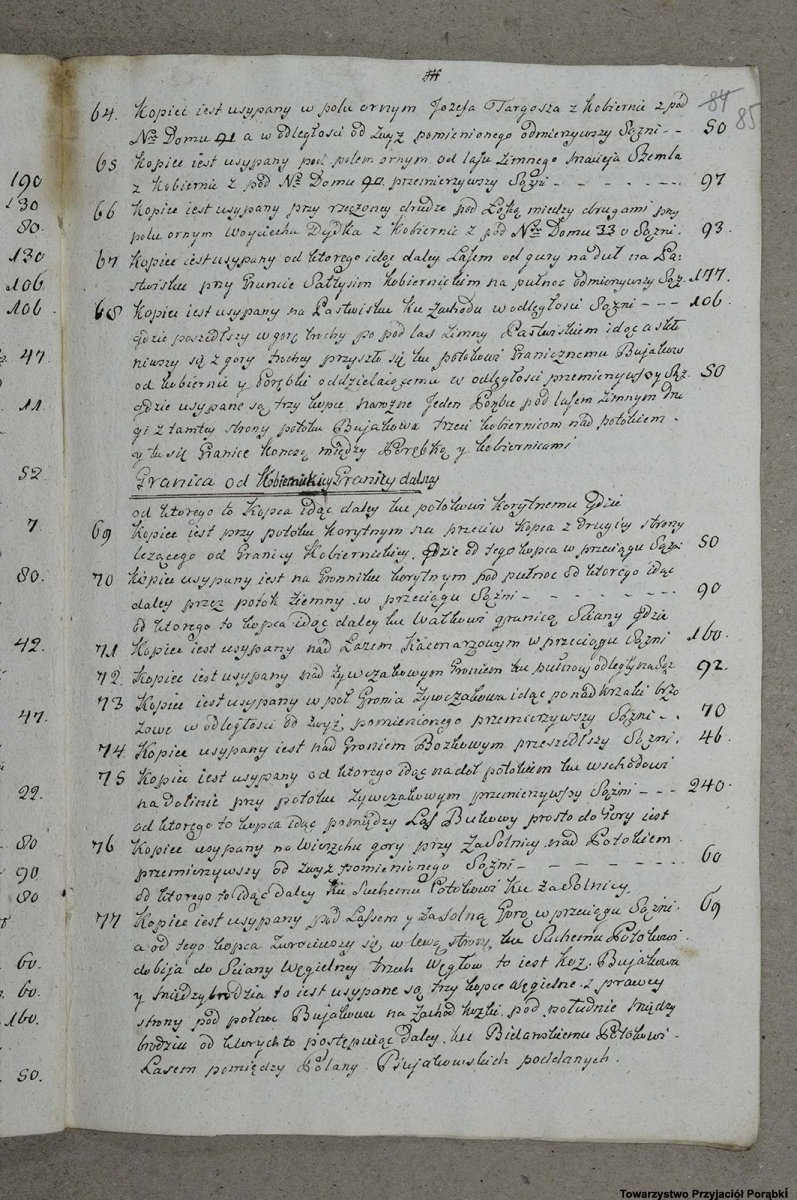 190
130
80.
130
106
106
47.
11.
52
7.
80.
42.
47.
22.
80
90
80
60.
60.
160.
50.
84
85
64. Kopiec iest usypany w polu ornym Jozefa Targosza z Kobiernic z pód
Nro Domu 91 a w odległosci od zwyz pomienionego odmierzywszy Sązni - - 50
65 Kopiec iest usypany pod polem ornym od lasu zimnego Macieja Szemla
z Kobiernic z pod Nro Domu 90. przemierzywszy Sązni - - - - 97
66 Kopiec iest usypany przy rzeczoney drudze pod Łąką między drugami przy
polu ornym Woyciecha Dydka z Kobiernic z pod Nro Domu 33 o Sązni. 93.
67 Kopiec iest usypany od ktorego idąc daley Lasem od gury na duł na Pa-
stwisku przy Granicie Kobiernickim na pułnoc odmierzywszy Sąz. 177.
68 Kopiec iest usypany na Pastwisku ku Zachodu w odległosci Sązni - - - 106.
gdzie poszedłszy w gorę trochy po pod las zimny Pastwiskiem idąc a skło
niwszy się z gory trochy przyszło się ku potokowi Granicznemu Bujakow
od Kobiernic y Porębki oddzielaiącemu w odległosci przemierzywszy Sąz. 50
gdzie usypane są trzy kopce narożne Jeden Porębce pod lasem zimnym Dru
gi z tamtey strony potoku Bujakowa trzeci Kobiernicom nad potokiem.
y tu się Granice konczą między Porębką y Kobiernicami
Granica od Kobiernickiey Granity dalszey
od ktorego to Kopca idąc daley ku potokowi Korytnemu gdzie
69 Kopiec iest przy potoku Korytnym na przeciw Kopca z drugiey strony
lezącego od Granicy Kobiernickiey, gdzie od tego kopca w przeciągu Sązni 50
70 Kopiec usypany iest na Gronniku Korytnym pod pułnoc od ktorego idąc
daley przez potok ziemny w przeciągu Sązni - - - - 90
od ktorego to kopca idąc daley ku Walkowi granicą Sciany gdzie
71 Kopiec iest usypany nad Lazem Kacenarzowym w przeciągu Sązni 160.
72. Kopiec iest usypany nad Zywczakowym Groniem ku pułnocy odległy na Sąz 92.
73 Kopiec iest usypany w puł Gronia Zywczakowa idąc ponad krzaki brzo
zowe w odległosci od zwyż pomienionego przemierzywszy Sązni - - 70
74. Kopiec usypany iest nad Groniem Bozkowym przeszedłszy Sązni. 46.
75 Kopiec iest usypany od ktorego idąc na doł potokiem ku wschodowi
na dolinie przy potoku Zywczakowym przemierzywszy Sązni - - - 240.
od ktorego to kopca idąc pomiędzy Las Bukowy prosto do Gory iest
76 Kopiec usypany na wierzchu gory przy Zasolnicy nad Potokiem
przemierzywszy od zwyz pomienionego Sązni - - - - 60
od ktorego to idąc daley ku Suchemu Potokowi ku Zasolnicy.
77 Kopiec iest usypany pod Lassem y Zasolną Gorą w przeciągu Sązni. 69
a od tego kopca zwrociwszy się w lewą stronę ku Suchemu Potokowi
dobija do Sciany Węgielney trzech Węgłow to iest Koz. Bujakowa
y Między brodzia to iest usypane są trzy kopce węgielne z prawey
strony pod połnoc Bujakowu na zachod kozki pod południe Między
brodziu od ktorych to postępuiąc daley. ku Bielanskiemu Potokowi -
Lasem pomiędzy Polany Pujakowskich poddanych.
Towarzystwo Przyjaciół Porąbki